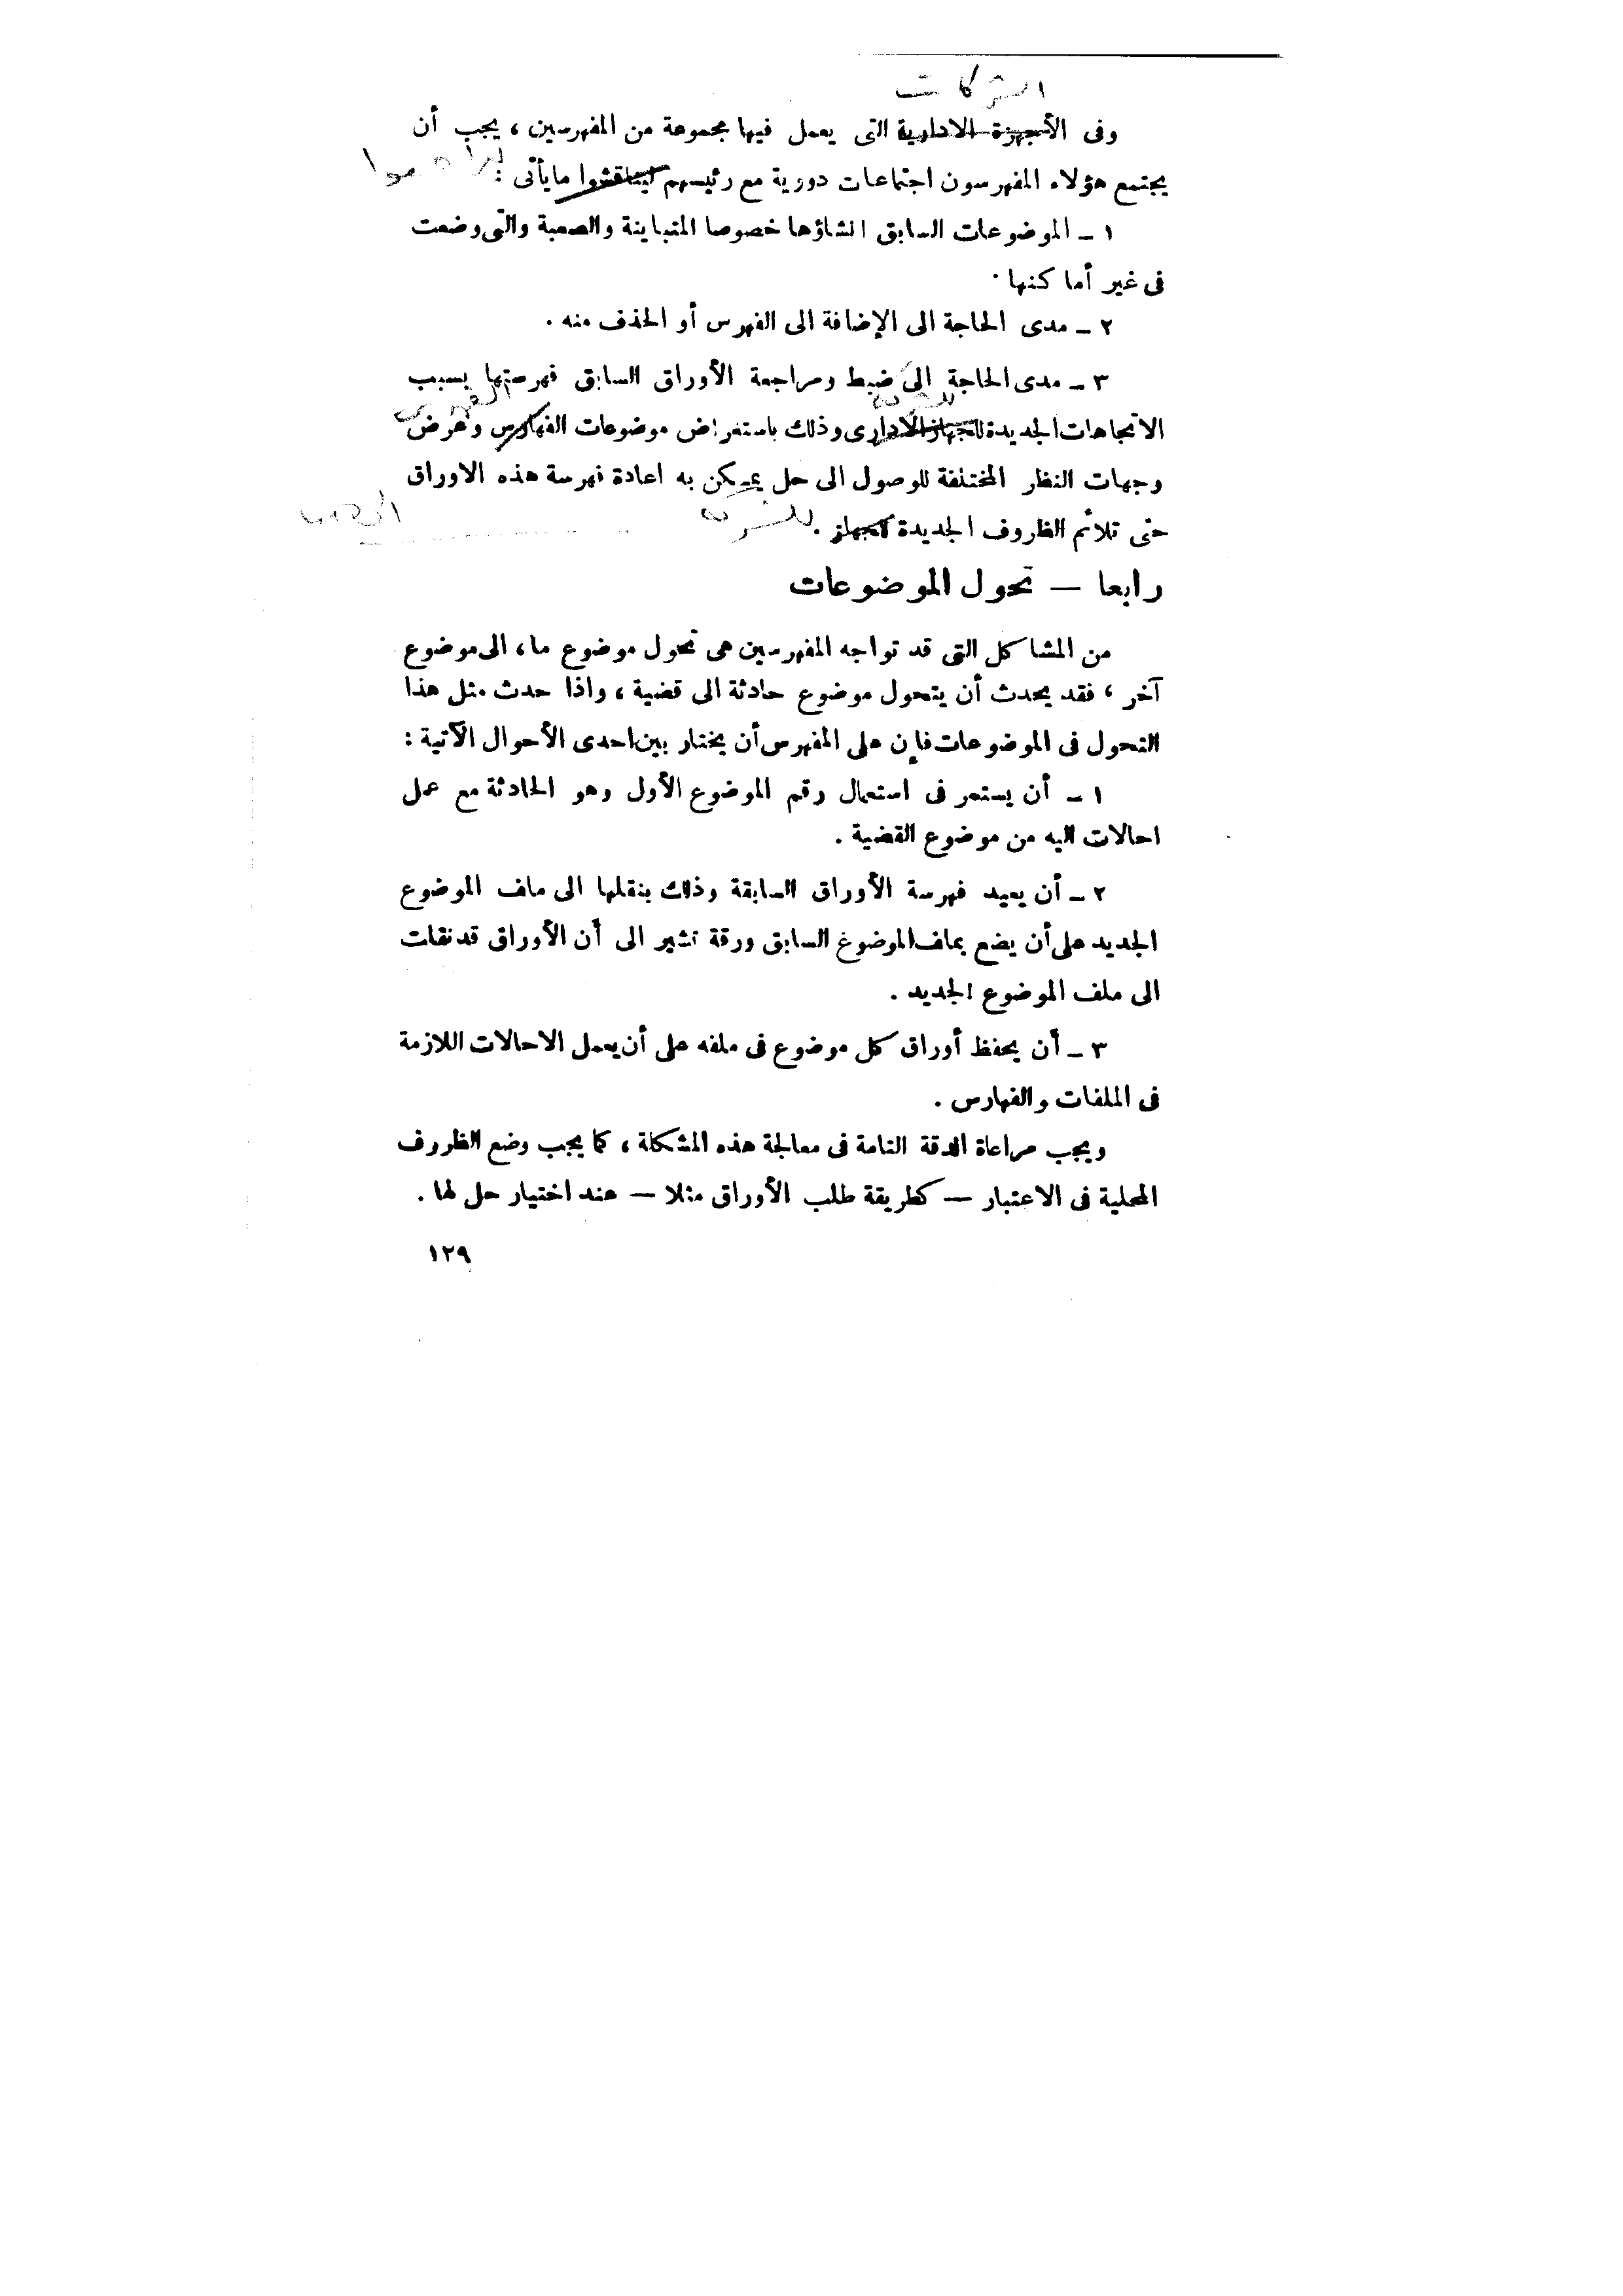 الشركات
وفى الأجهزة الادارية التى يعمل فيها مجموعة من المفهرسين ، يجب أن
يجتمع هؤلاء المفهرسون اجتماعات دورية مع رئيسهم ليناقشوا مايأتى :
١ – الموضوعات السابق انشاؤها خصوصا المتباينة والصعبة والتى وضعت
فى غير أماكنها .
٢ – مدى الحاجة الى الإضافة الى الفهرس أو الحذف منه .
٣ – مدى الحاجة الى ضبط ومراجعة الأوراق السابق فهرستها بسبب
للشركة
الاتجاهات الجديدة للجهاز الادارى وذلك باستعراض موضوعات الفهارس وعرض
وجهات النظر المختلفة للوصول الى حل يمكن به اعادة فهرسة هذه الاوراق
للشركة
حتى تلائم الظروف الجديدة للجهاز .
رابعا — تحول الموضوعات
من المشاكل التى قد تواجه المفهرسين هى تحول موضوع ما ، الى موضوع
آخر ، فقد يحدث أن يتحول موضوع حادثة الى قضية ، واذا حدث مثل هذا
التحول فى الموضوعات فإن على المفهرس أن يختار بين احدى الأحوال الآتية :
١ – أن يستمر فى استعمال رقم الموضوع الأول وهو الحادثة مع عمل
احالات اليه من موضوع القضية .
٢ – أن يعيد فهرسة الأوراق السابقة وذلك بنقلها الى ملف الموضوع
الجديد على أن يضع بملف الموضوغ السابق ورقة تشير الى أن الأوراق قد نقلت
الى ملف الموضوع الجديد .
٣ – أن يحفظ أوراق كل موضوع فى ملفه على أن يعمل الاحالات اللازمة
فى الملفات والفهارس .
ويجب مراعاة الدقة التامة فى معالجة هذه المشكلة ، كما يجب وضع الظروف
المحلية فى الاعتبار — كطريقة طلب الأوراق مثلا — عند اختيار حل لها .
١٢٩